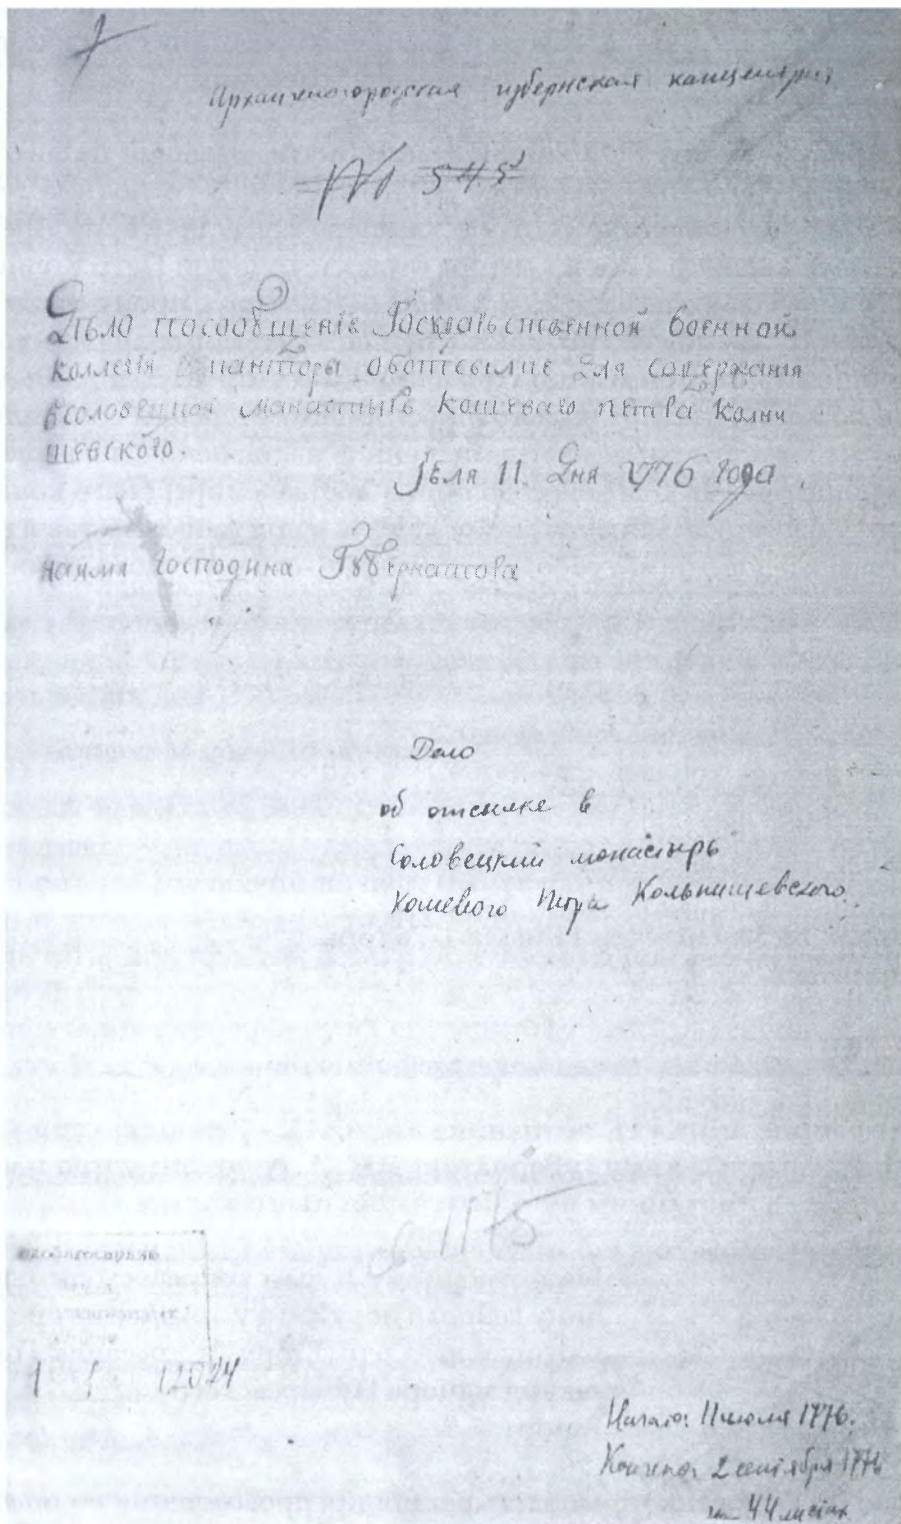 Архангелогородская губернская канцелярия
№ 545
Дѣло посообщенїю Госȣдарьственной военной
коллегїи конторы оботсылке для содержания
всоловецкой манастырь кошеваго петра калні
шевского.
Июля 11 Дня 1776 года
наимя господина Гȣбернатора
Дело
об отсылке в
Соловецкий монастырь
Кошевого Петра Кольнишевского.
1 1 12024
Начато: 11 июля 1776.
Кончено: 2 сентября 1776
на 44 листах